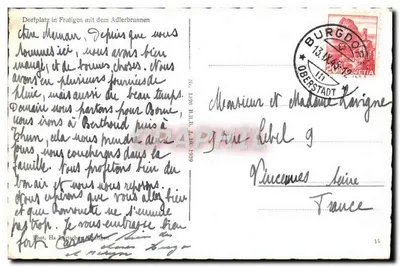 Dorfplatz in Frutigen mit dem Adlerbrunnen
Chère Maman. Depuis que nous
sommes ici, nous avons bien
mangé, et de bonnes choses. Nous
avons eu plusieurs journées de
pluie, mais aussi du beau temps.
Demain nous partons pour Berne,
nous irons à Berthoud puis à
Thun, cela nous prendra deux
jours, nous coucherons dans la
famille. Nous profitons bien du
bon air et nous nous reposons.
Nous espérons que vous allez bien
et que Bonnette ne s'ennuie
pas trop. Je vous embrasse bien
fort
BURGDORF
OBERSTADT
HELVETIA
Monsieur et Madame Lavigne
9 rue Lebel 9
Vincennes Seine
France
11